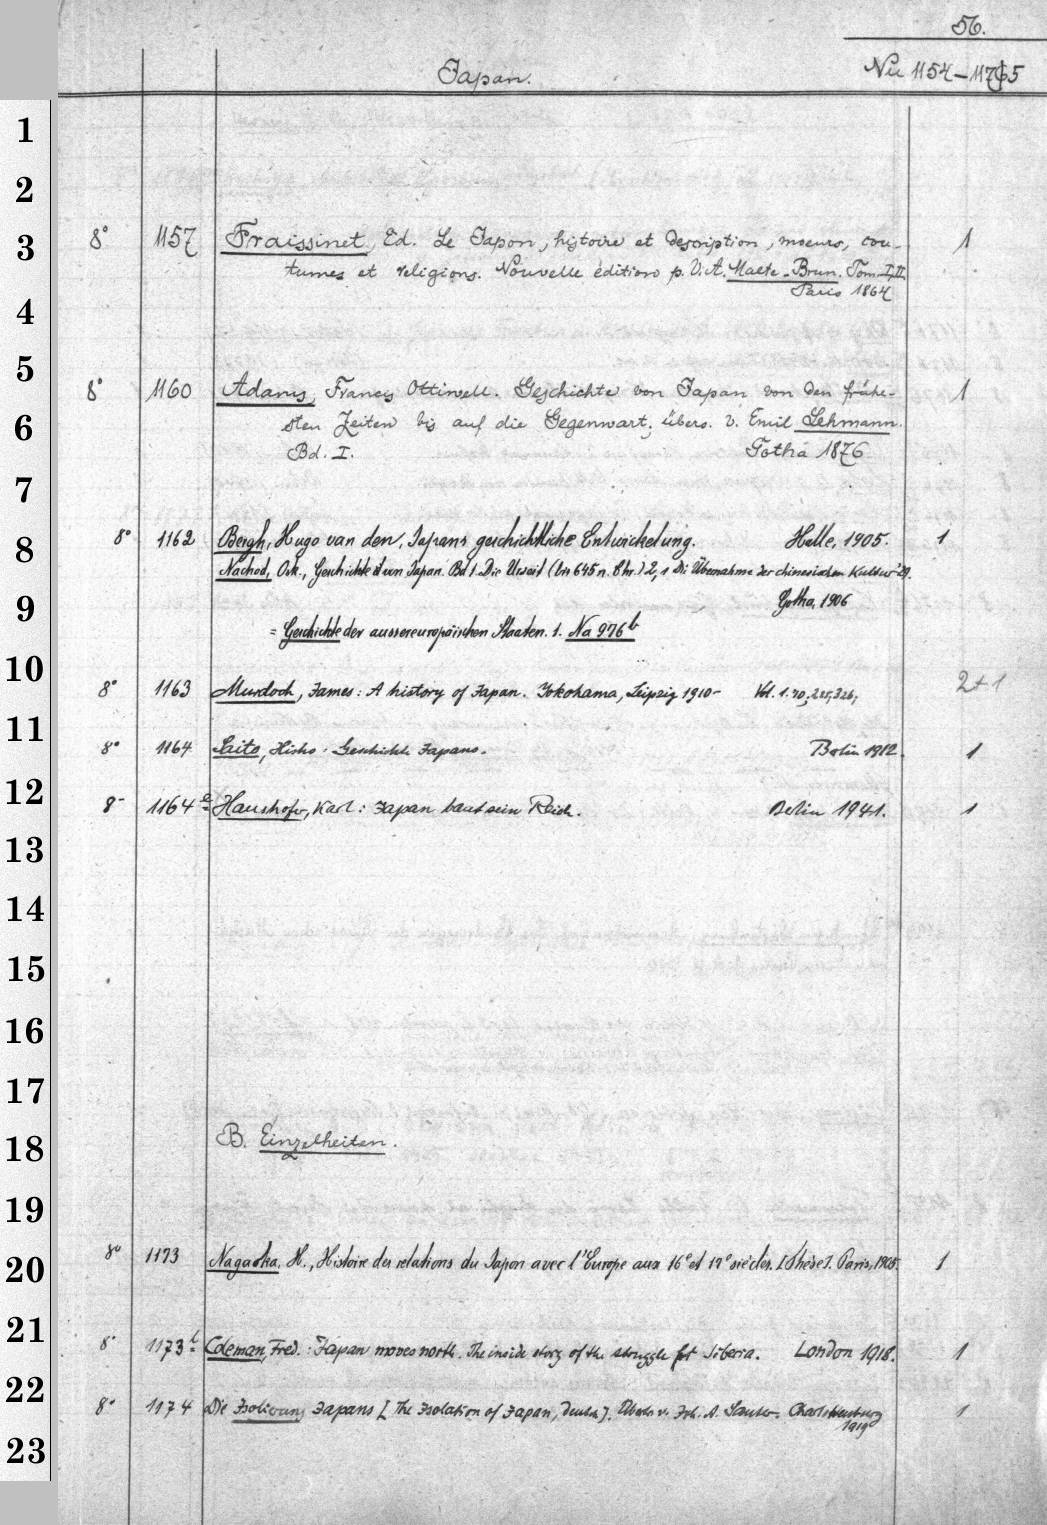 56.
Japan. Nu 1154-1175
1
2
3 8° 1157 Fraissinet, Ed. Le Japon, histoire et description, moeurs, cou- 1
tumes et religions. Nouvelle édition p. V. A. Malte-Brun. Tom I, II.
Paris 1864
4
5
8° 1160 Adams, Francis Ottiwell. Geschichte von Japan von den frühe- 1
6 sten Zeiten bis auf die Gegenwart; übers. v. Emil Lehmann.
Bd. I. Gotha 1876
7
8 8° 1162 Bergh, Hugo van den, Japans geschichtliche Entwickelung. Halle, 1905. 1
Nachod, Osk., Geschichte von Japan. Bd 1. Die Urzeit (bis 645 n. Chr.) 2,1 Die Übernahme der chinesischen Kultur '29.
9 Gotha, 1906
= Geschichte der aussereuropäischen Staaten. 1. Na 976b
10 8° 1163 Murdoch, James: A history of Japan. Yokohama, Leipzig 1910- Vol. 1. 2+1
11 8° 1164 Saito, Hisho: Geschichte Japans. Berlin 1912. 1
12 8° 1164a Haushofer, Karl: Japan baut sein Reich. Berlin 1941. 1
13
14
15
16
17
18 B. Einzelheiten.
19
20 8° 1173 Nagaoka, H., Histoire des relations du Japon avec l'Europe aux 16e et 17e siècles. [Thèse]. Paris, 1905. 1
21
8° 1173 Coleman, Fred.: Japan moves north. The inside story of the struggle for Siberia. London 1918. 1
22
8° 1174 Die Isolierung Japans [The Isolation of Japan, deutsch]. Übers. v. Joh. A. Sauter. Charlottenburg 1
1919
23